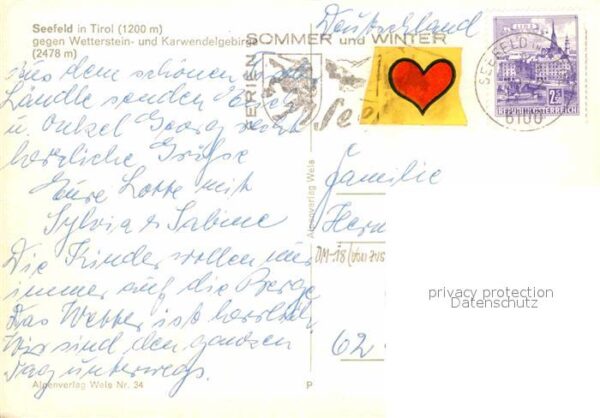 Seefeld in Tirol (1200 m)
gegen Wetterstein- und Karwendelgebirge
(2478 m)
Deutschland
FERIEN
SOMMER und WINTER
See
SEEFELD IN
6100
2.50
REPUBLIK ÖSTERREICH
Aus dem schönen
Ländle senden Euch
u. Onkel Georg recht
herzliche Grüße
Eure Lotte mit
Sylvia u. Sabine
Die Kinder wollen nur
immer auf die Berge
Das Wetter ist herrlich
Wir sind den ganzen
Tag unterwegs.
Alpenverlag Wels
Familie
Herm
DM-18 (von
62
privacy protection
Datenschutz
Alpenverlag Wels Nr. 34
P